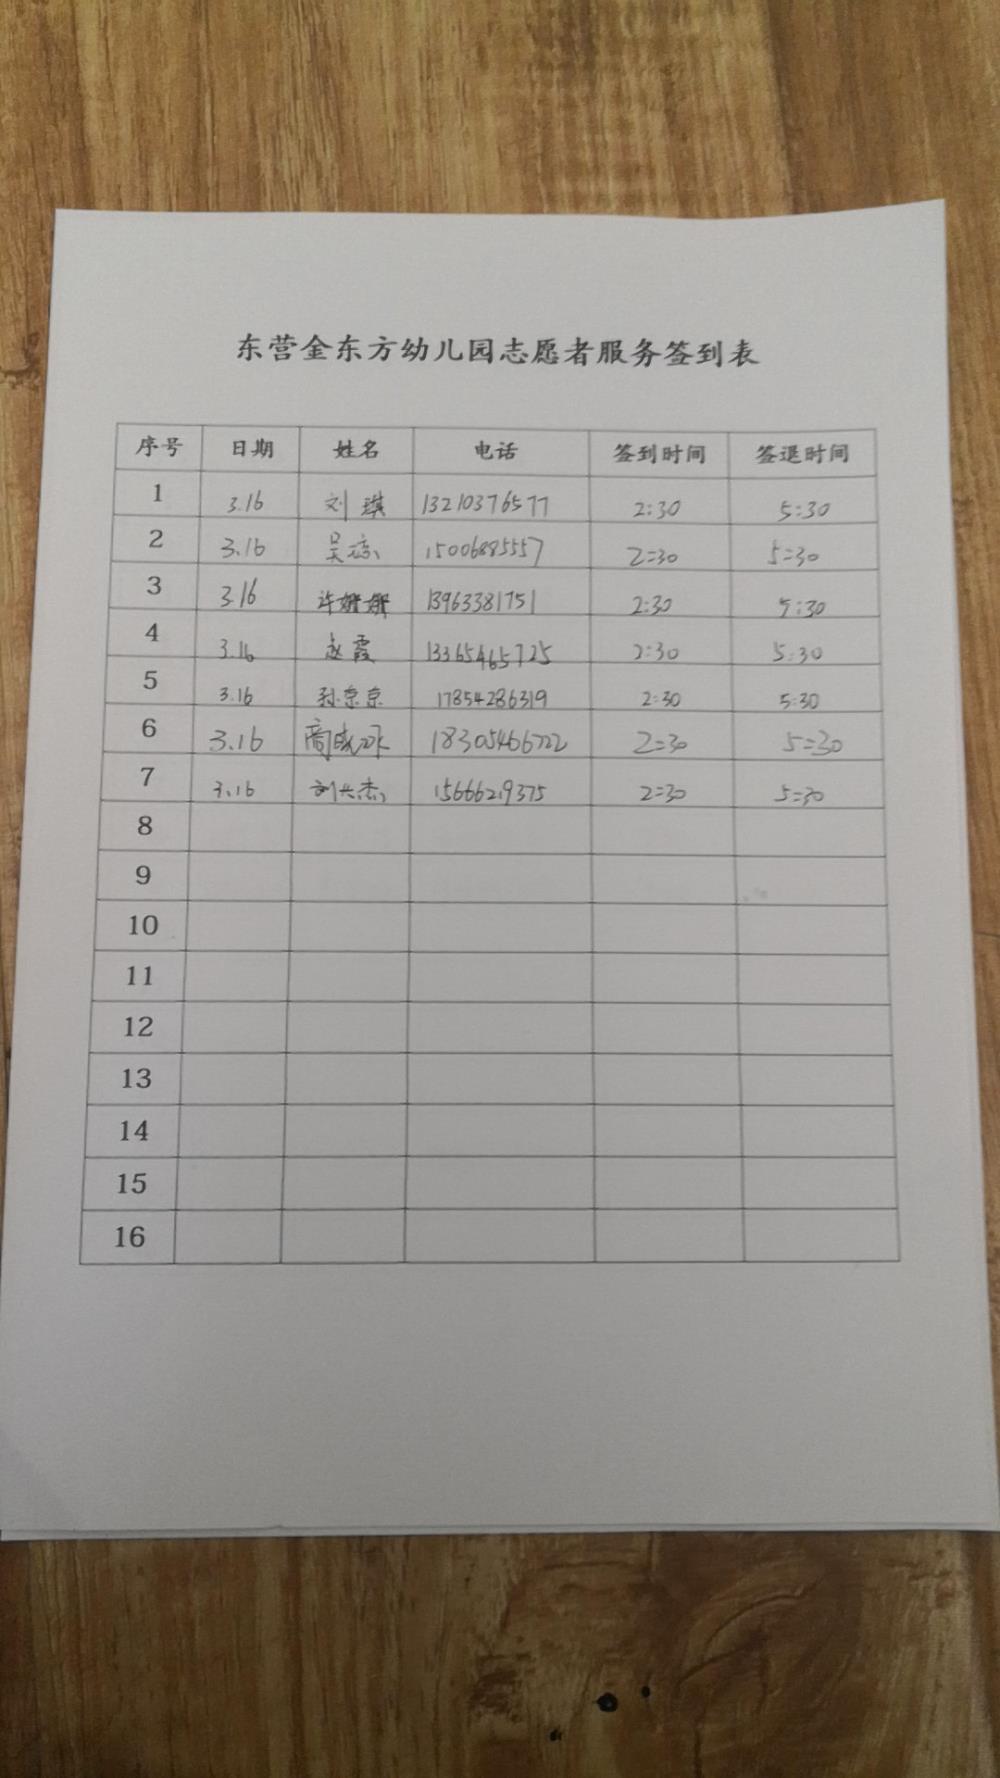 东营金东方幼儿园志愿者服务签到表
序号 日期 姓名 电话 签到时间 签退时间
1 3.16 刘琪 13210376577 2:30 5:30
2 3.16 吴 15006885557 2:30 5:30
3 3.16 许姗姗 13963381751 2:30 5:30
4 3.16 赵霞 13365465725 2:30 5:30
5 3.16 孙京京 17854286319 2:30 5:30
6 3.16 商成冰 18305466722 2:30 5:30
7 3.16 刘兴杰 15666219375 2:30 5:30
8
9
10
11
12
13
14
15
16